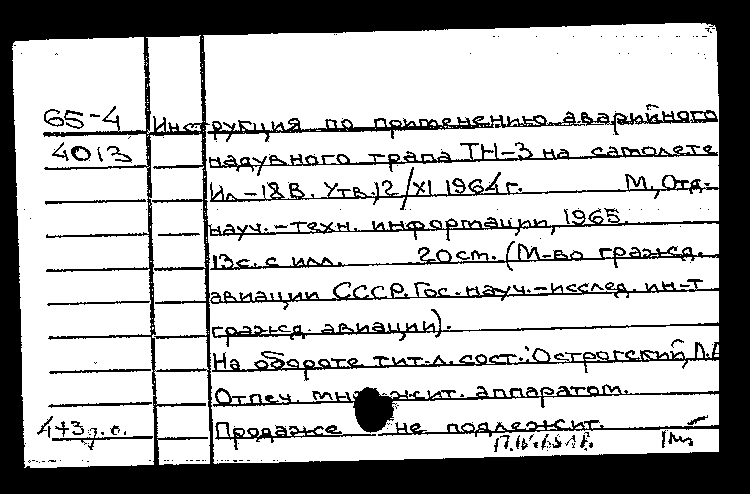 65-4 Инструкция по применению аварийного
4013 надувного трапа ТН-3 на самолете
Ил-18В. Утв. 12/XI 1964г. М., Отд.
науч.-техн. информации, 1965.
13с. с илл. 20см. (М-во гражд.
авиации СССР. Гос. науч.-исслед. ин-т
гражд. авиации).
На обороте тит. л. сост.: Острогский,
Отпеч. множит. аппаратом.
Продаже не подлежит.